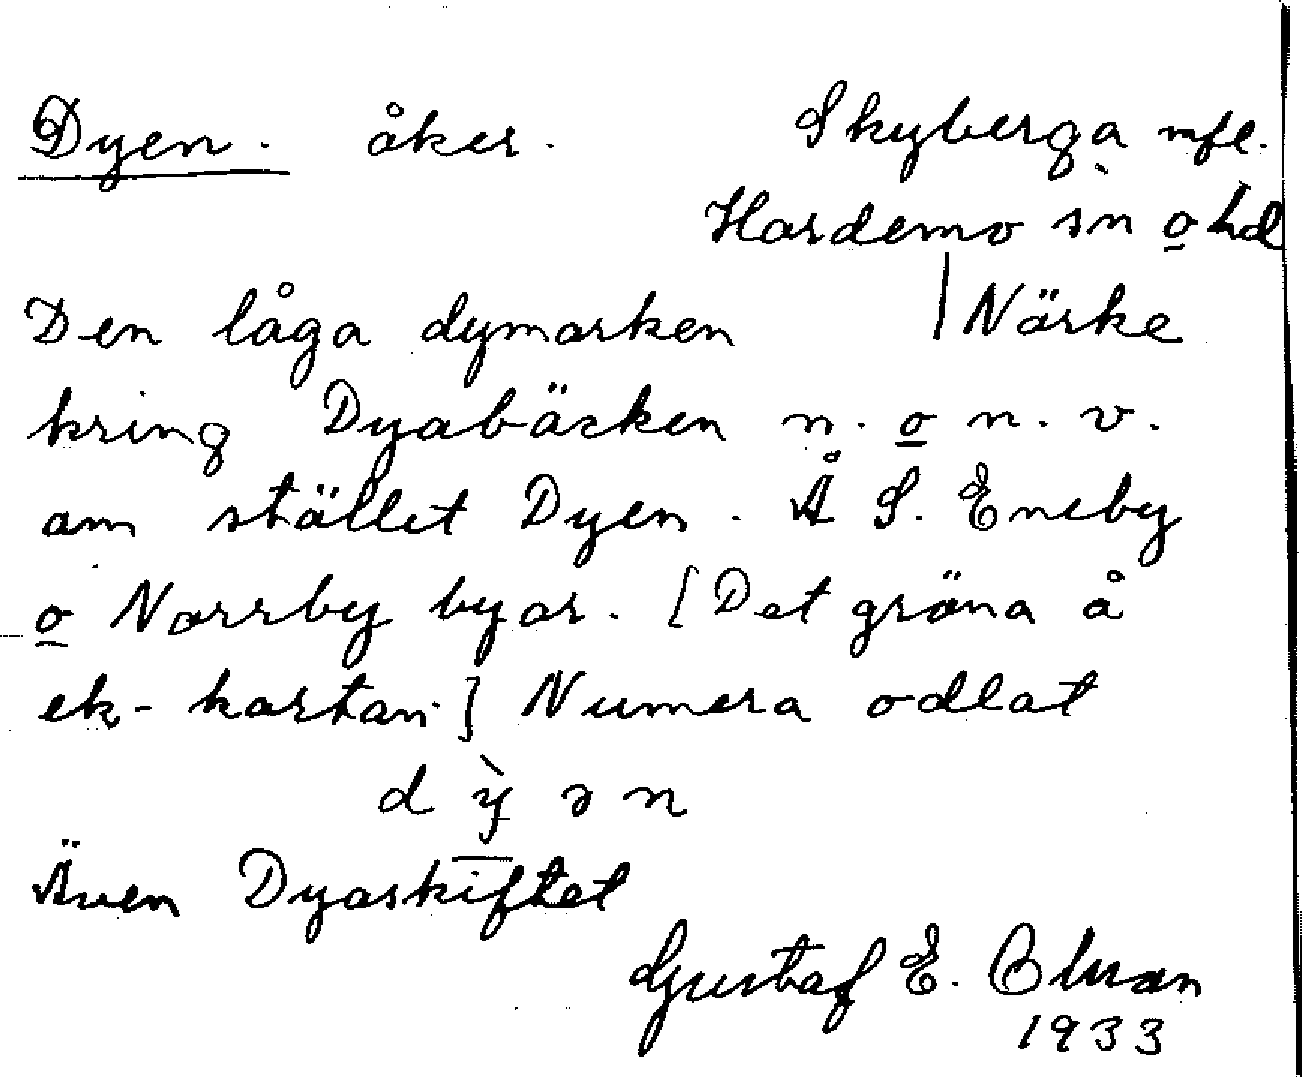 Dyen. åker. Skyberga mfl.
Hardemo sn o hd
Den låga dymarken | Närke
kring Dyabäcken n. o n. v.
om stället Dyen. Å S. Eneby
o Norrby byar. [Det gröna å
ek-kartan.] Numera odlat
d ỳ ə n
Även Dyaskiftet
Gustaf E.
1933